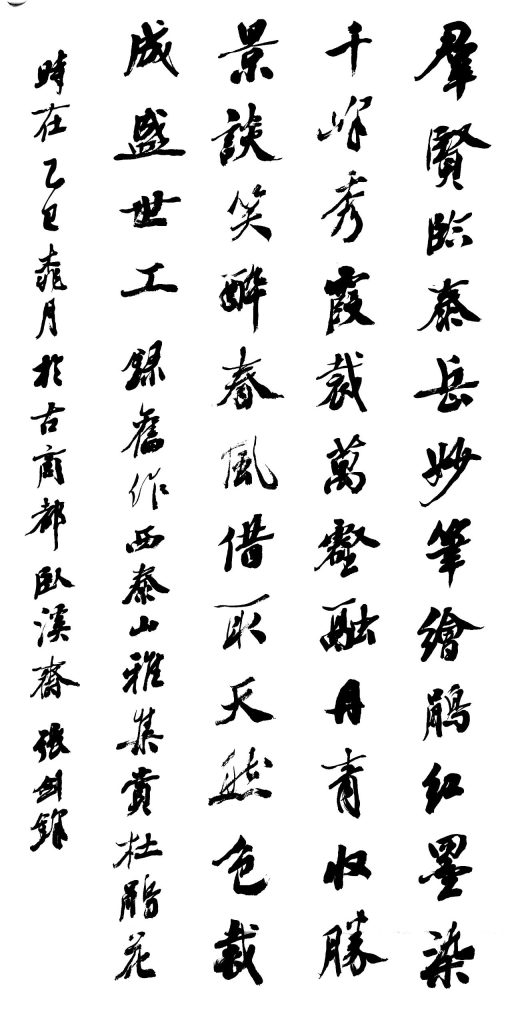 羣賢臨泰岳妙筆繪鵑紅墨染
千峰秀霞裁萬壑融丹青收勝
景談笑醉春風借取天然色裁
成盛世工 錄舊作西泰山雅集賞杜鵑花
時在乙巳桃月於古商都臥溪齋 張剑鋒